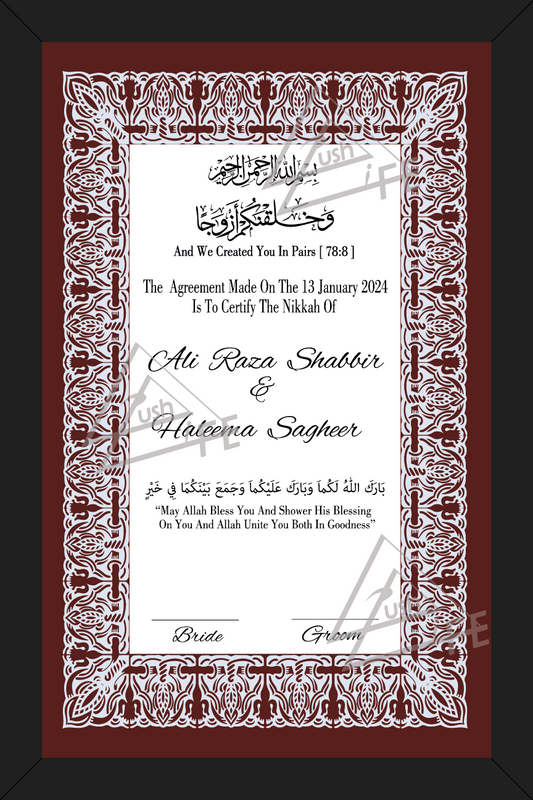 بِسْمِ اللهِ الرَّحْمٰنِ الرَّحِيْمِ
وَخَلَقْنٰكُمْ أَزْوٰجًا
And We Created You In Pairs [ 78:8 ]
The Agreement Made On The 13 January 2024
Is To Certify The Nikkah Of
Ali Raza Shabbir
&
Haleema Sagheer
بَارَكَ اللهُ لَكُماَ وَبَارَكَ عَلَيْكُماَ وَجَمَعَ بَيْنَكُمَا فِي خَيْرٍ
“May Allah Bless You And Shower His Blessing
On You And Allah Unite You Both In Goodness”
Bride Groom